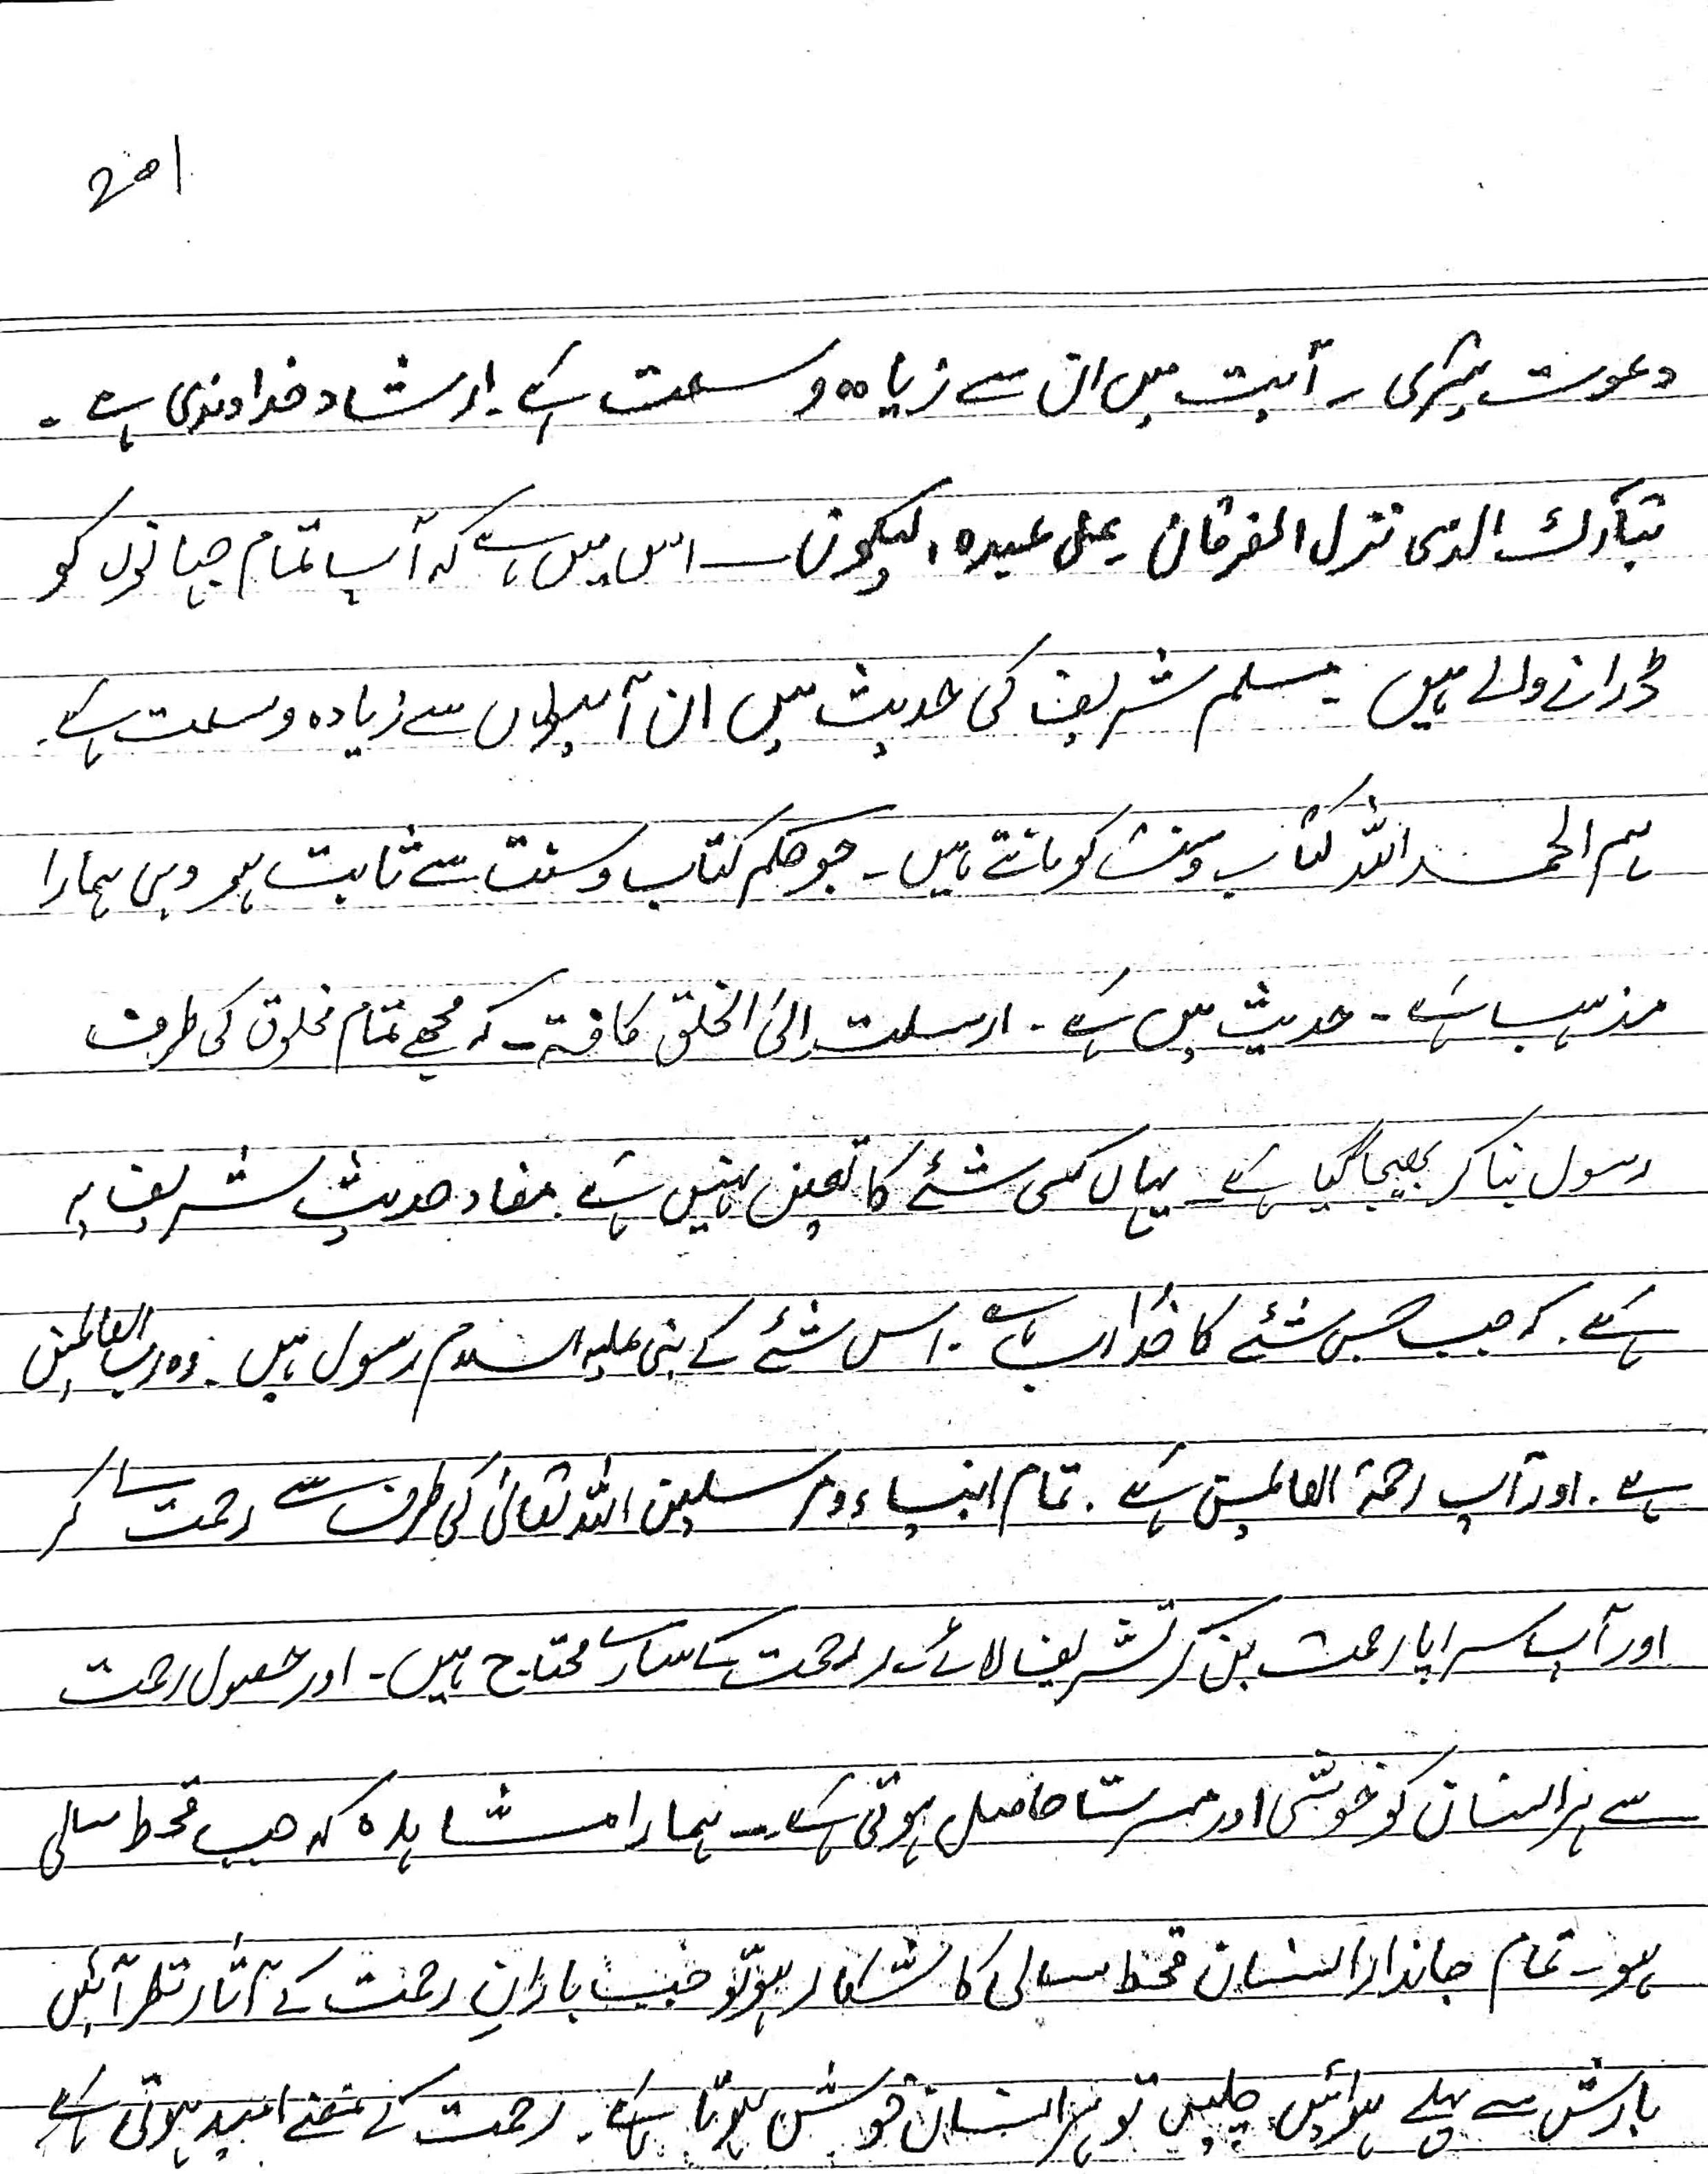 201
دعوت ہیری ۔ آیت میں ان سے زیادہ وسعت ہے ۔ ارشاد خداوندی ہے ۔
تبارک الذی نزل الفرقان علی عبدہ لیکون ۔ اس میں ہے کہ آپ تمام جہانوں کو
ڈرانے والے ہیں ۔ مسلم شریف کی حدیث میں ان آیتوں سے زیادہ وسعت ہے ۔
ہم الحمد اللہ کتاب و سنت کو مانتے ہیں ۔ جو حکم کتاب و سنت سے ثابت ہو وہی ہمارا
مذہب ہے ۔ حدیث میں ہے ۔ ارسلت الی الخلق کافۃ ۔ کہ مجھے تمام مخلوق کی طرف
رسول بنا کر بھیجا گیا ہے ۔ یہاں کسی شئے کا تعین نہیں ہے ۔ مفاد حدیث شریف یہ
ہے ۔ کہ جب جس شئے کا خدا رب ہے ۔ اس شئے کے نبی علیہ السلام رسول ہیں ۔ وہ رب العالمین
ہے ۔ اور آپ رحمۃ العالمین ہے ۔ تمام انبیاء و مرسلین اللہ تعالیٰ کی طرف سے رحمت لے کر
اور آپ سراپا رحمت بن کر تشریف لائے ۔ رحمت کے سارے محتاج ہیں ۔ اور حصول رحمت
سے ہر انسان کو خوشی اور مسرت حاصل ہوتی ہے ۔ ہمارا مشاہدہ کہ جب قحط سالی
ہو ۔ تمام جاندار انسان قحط سالی کا شکار ہو تو جب بارانِ رحمت کے آثار نظر آئیں
بارش سے پہلے ہوائیں چلیں تو ہر انسان خوش ہوتا ہے ۔ رحمت کے امید ہوتی ہے